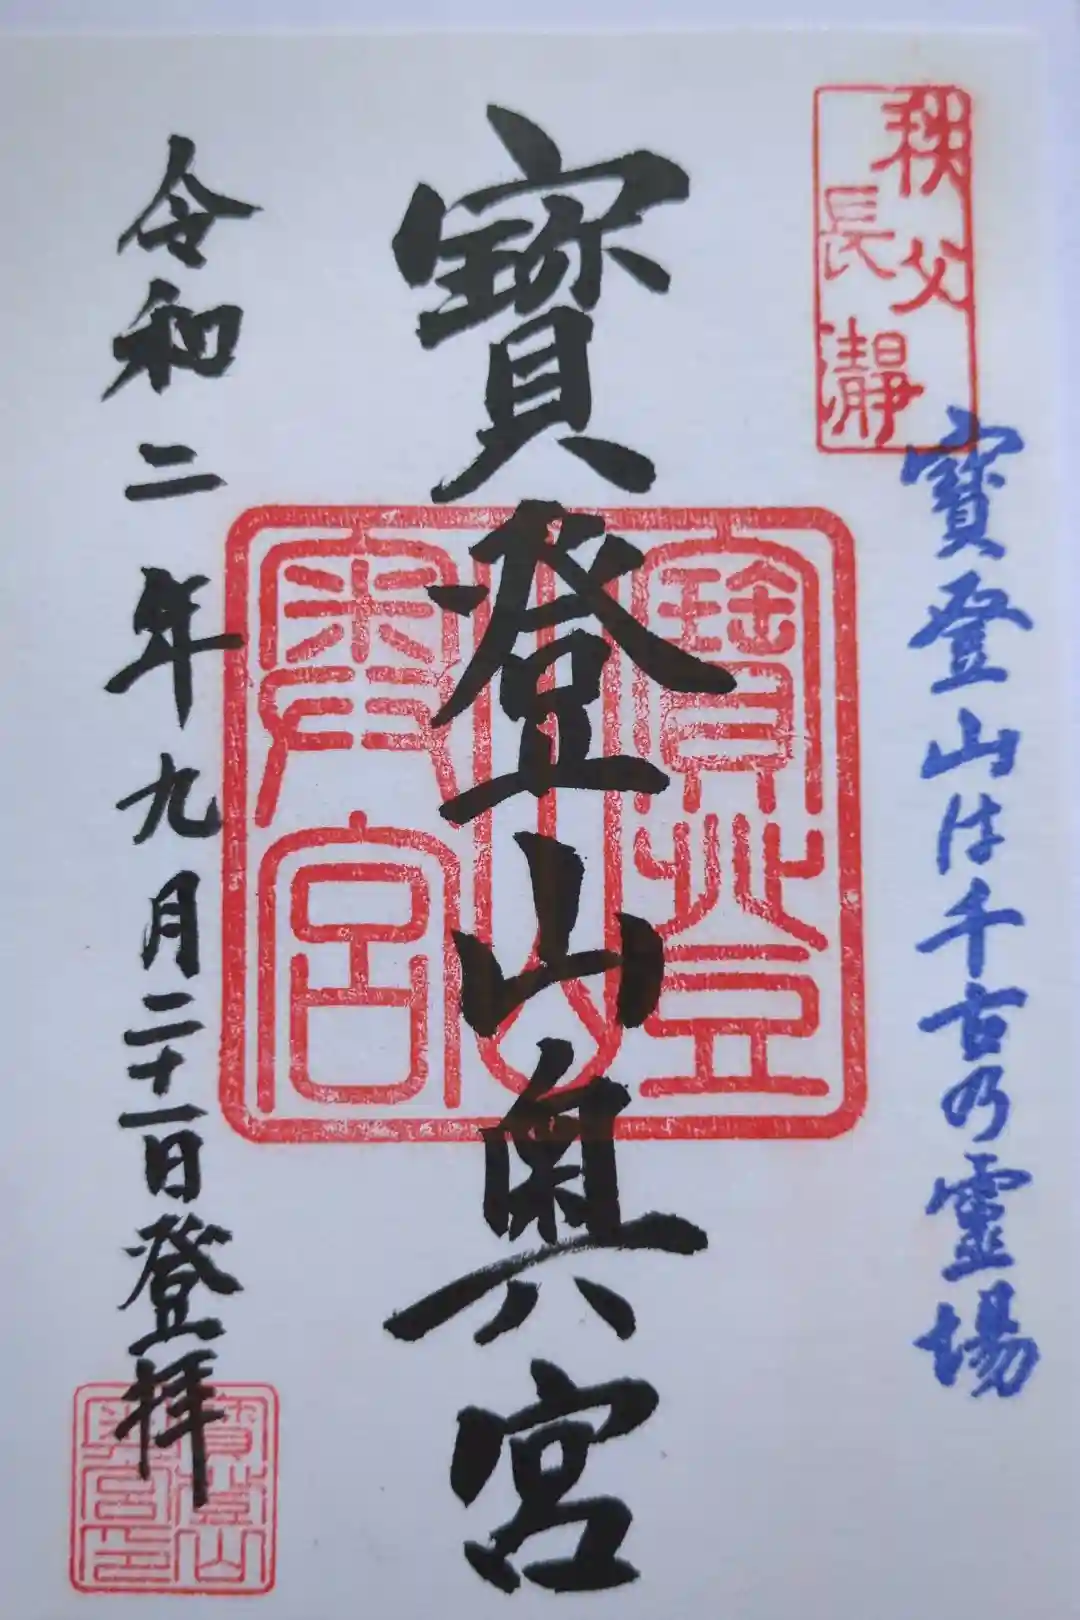 秩父
長瀞
寶登山は千古乃靈場
寶登山奥宮
寶登
山
奥宮
令和二年九月二十一日登拝
寶登山
奥宮印